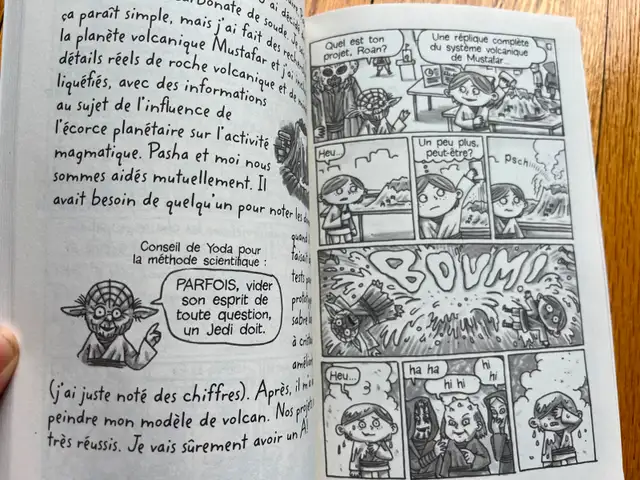 bonate de soude. Je
ça paraît simple, mais j'ai fait des
la planète volcanique Mustafar et j'ai
détails réels de roche volcanique et de
liquéfiés, avec des informations
au sujet de l'influence de
l'écorce planétaire sur l'activité
magmatique. Pasha et moi nous
sommes aidés mutuellement. Il
avait besoin de quelqu'un pour noter les
quand
faisait
tests
sabre
à
Conseil de Yoda pour
la méthode scientifique :
PARFOIS, vider
son esprit de
toute question,
un Jedi doit.
(j'ai juste noté des chiffres). Après, il m'a
peindre mon modèle de volcan. Nos
très réussis. Je vais sûrement avoir un A
Quel est ton
projet, Roan?
Une réplique complète
du système volcanique
de Mustafar...
Heu...
Un peu plus,
peut-être?
pschiiii
BOUM!
Heu...
ha ha
hi hi
hi
hi